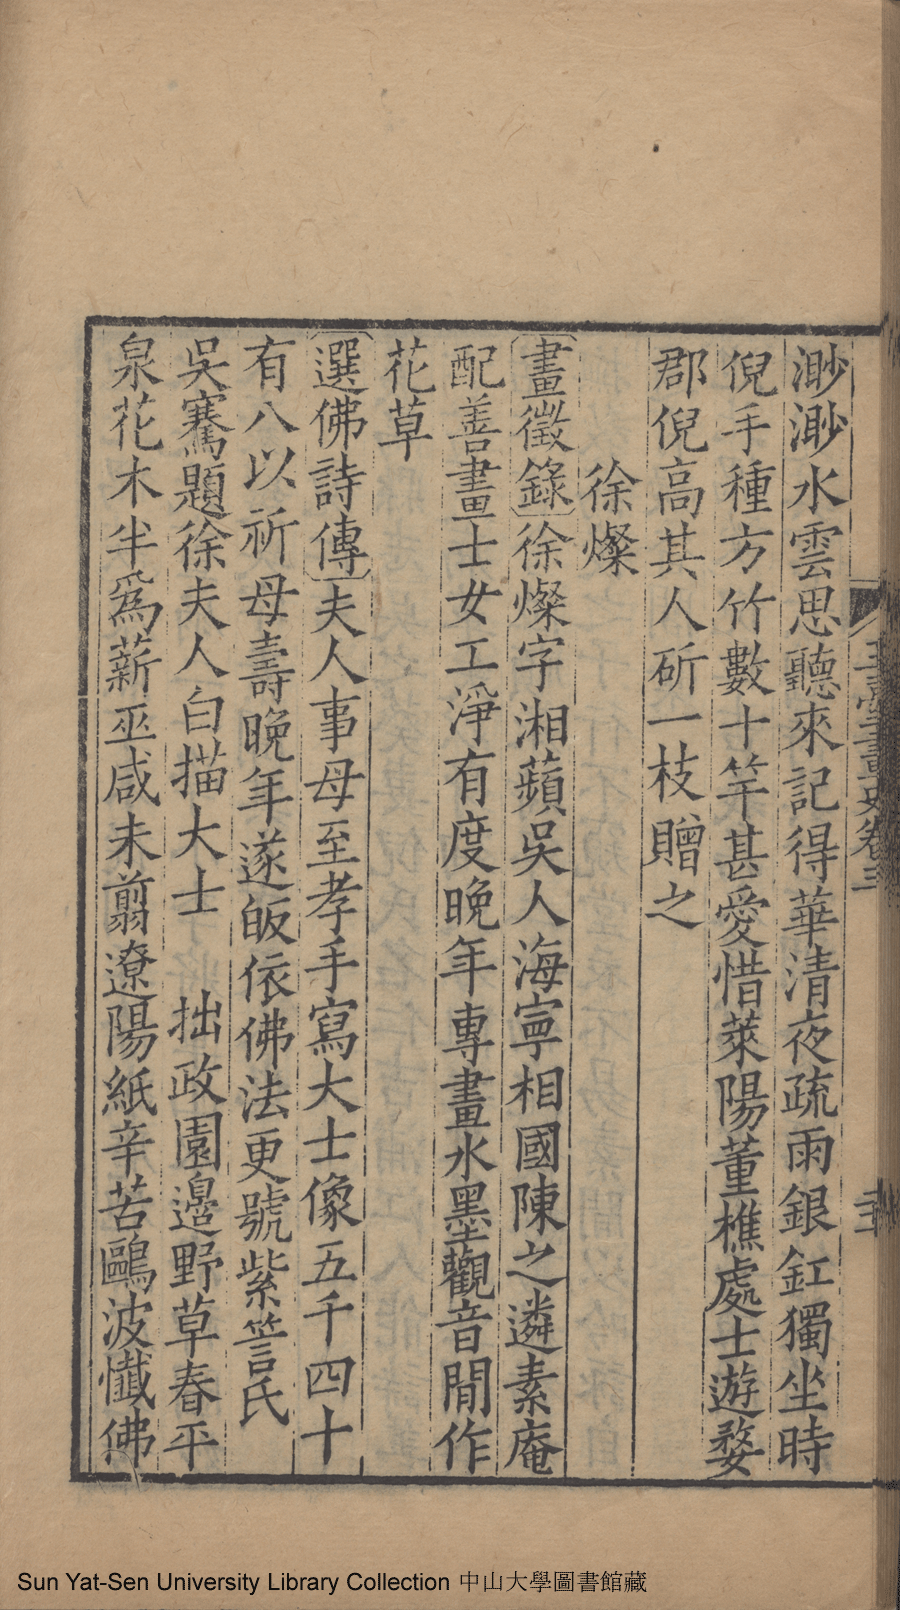 渺渺水雲思聽來記得華清夜疏雨銀釭獨坐時
倪手種方竹數十竿甚愛惜萊陽董樵處士遊婺
郡倪高其人斫一枝贈之
徐燦
畫徵錄徐燦字湘蘋吳人海寧相國陳之遴素庵
配善畫士女工淨有度晚年專畫水墨觀音閒作
花草
選佛詩傳夫人事母至孝手寫大士像五千四十
有八以祈母壽晚年遂皈依佛法更號紫䇾氏
吳騫題徐夫人白描大士 拙政園邊野草春平
泉花木半爲薪巫咸未翦遼陽紙辛苦鷗波懺佛
玉臺畫史卷三
Sun Yat-Sen University Library Collection 中山大學圖書館藏